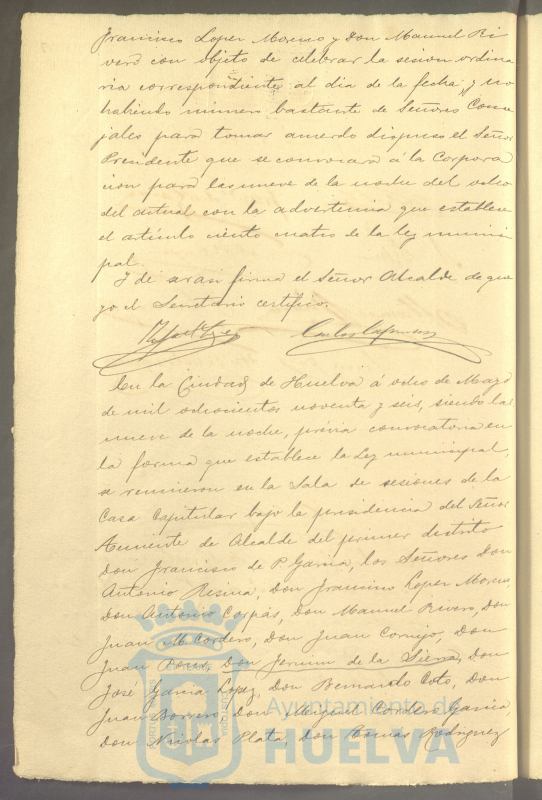 Francisco Lopez Moreno y Don Manuel Ri
vero con objeto de celebrar la sesion ordina
ria correspondiente al dia de la fecha, y no
habiendo número bastante de Señores Conce
jales para tomar acuerdo dispuso el Señor
Presidente que se convocara á la Corpora
cion para las nueve de la noche del ocho
del actual con la advertencia que establece
el artículo ciento cuatro de la ley munici
pal.
Y de ser asi firma el Señor Alcalde de que
yo el Secretario certifico.
En la Ciudad de Huelva á ocho de Mayo
de mil ochocientos noventa y seis, siendo las
nueve de la noche, prévia convocatoria en
la forma que establece la Ley municipal,
se reunieron en la Sala de sesiones de la
Casa Capitular bajo la presidencia del Señor
Teniente de Alcalde del primer distrito
Don Francisco de P. Garcia, los Señores Don
Antonio Resina, Don Francisco Lopez Moreno,
Don Antonio Corpas, Don Manuel Rivero, Don
Juan M. Cordero, Don Juan Cornejo, Don
Juan Don de la Sierra, Don
José Garcia Lopez, Don Bernardo Coto, Don
Juan Borrero, Don Miguel Cordero Garcia,
Don Nicolas Plata, Don Tomas Rodriguez
Ayuntamiento de
HUELVA